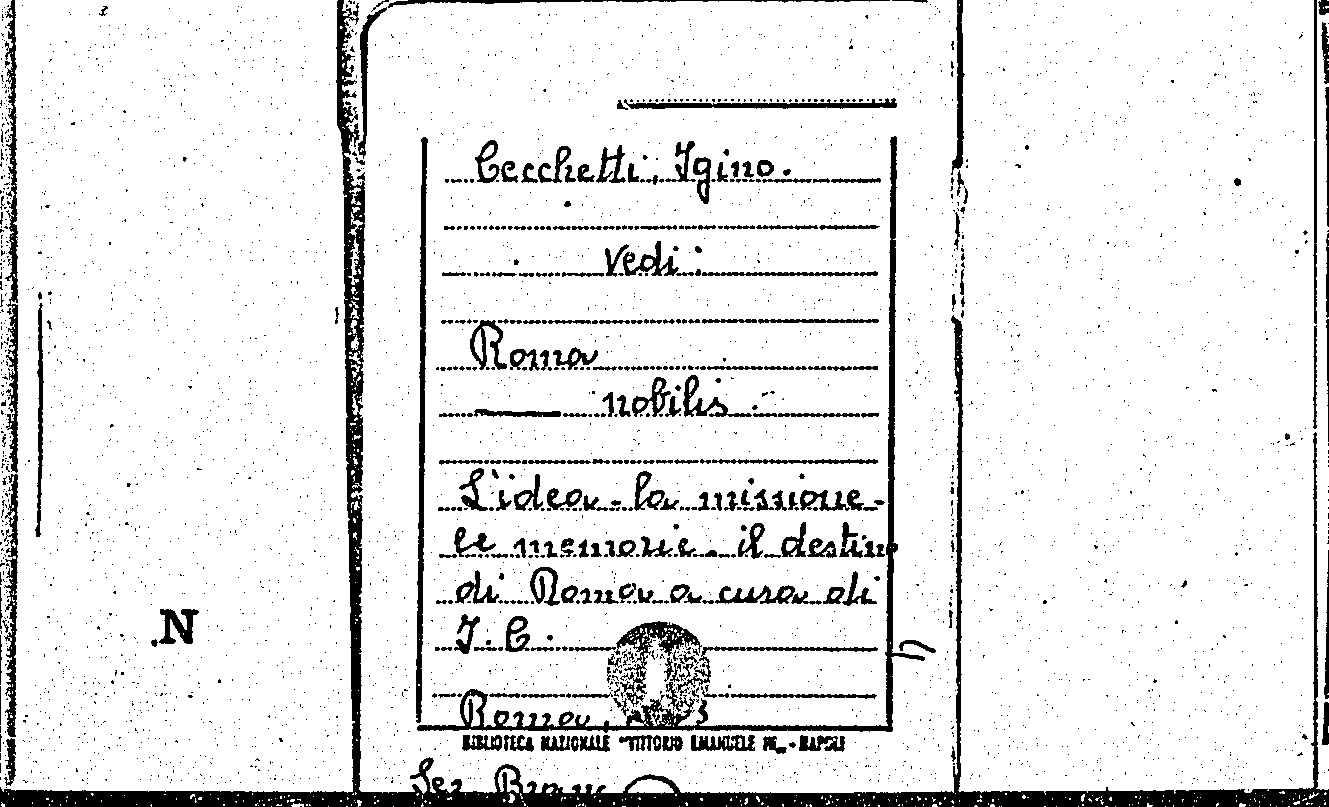 Cecchetti, Igino.
Vedi:
Roma
—— nobilis.
L'idea - la missione -
le memorie - il destino
di Roma a cura di
I. C.
.N
Roma,
BIBLIOTECA NAZIONALE "VITTORIO EMANUELE III„ - NAPOLI